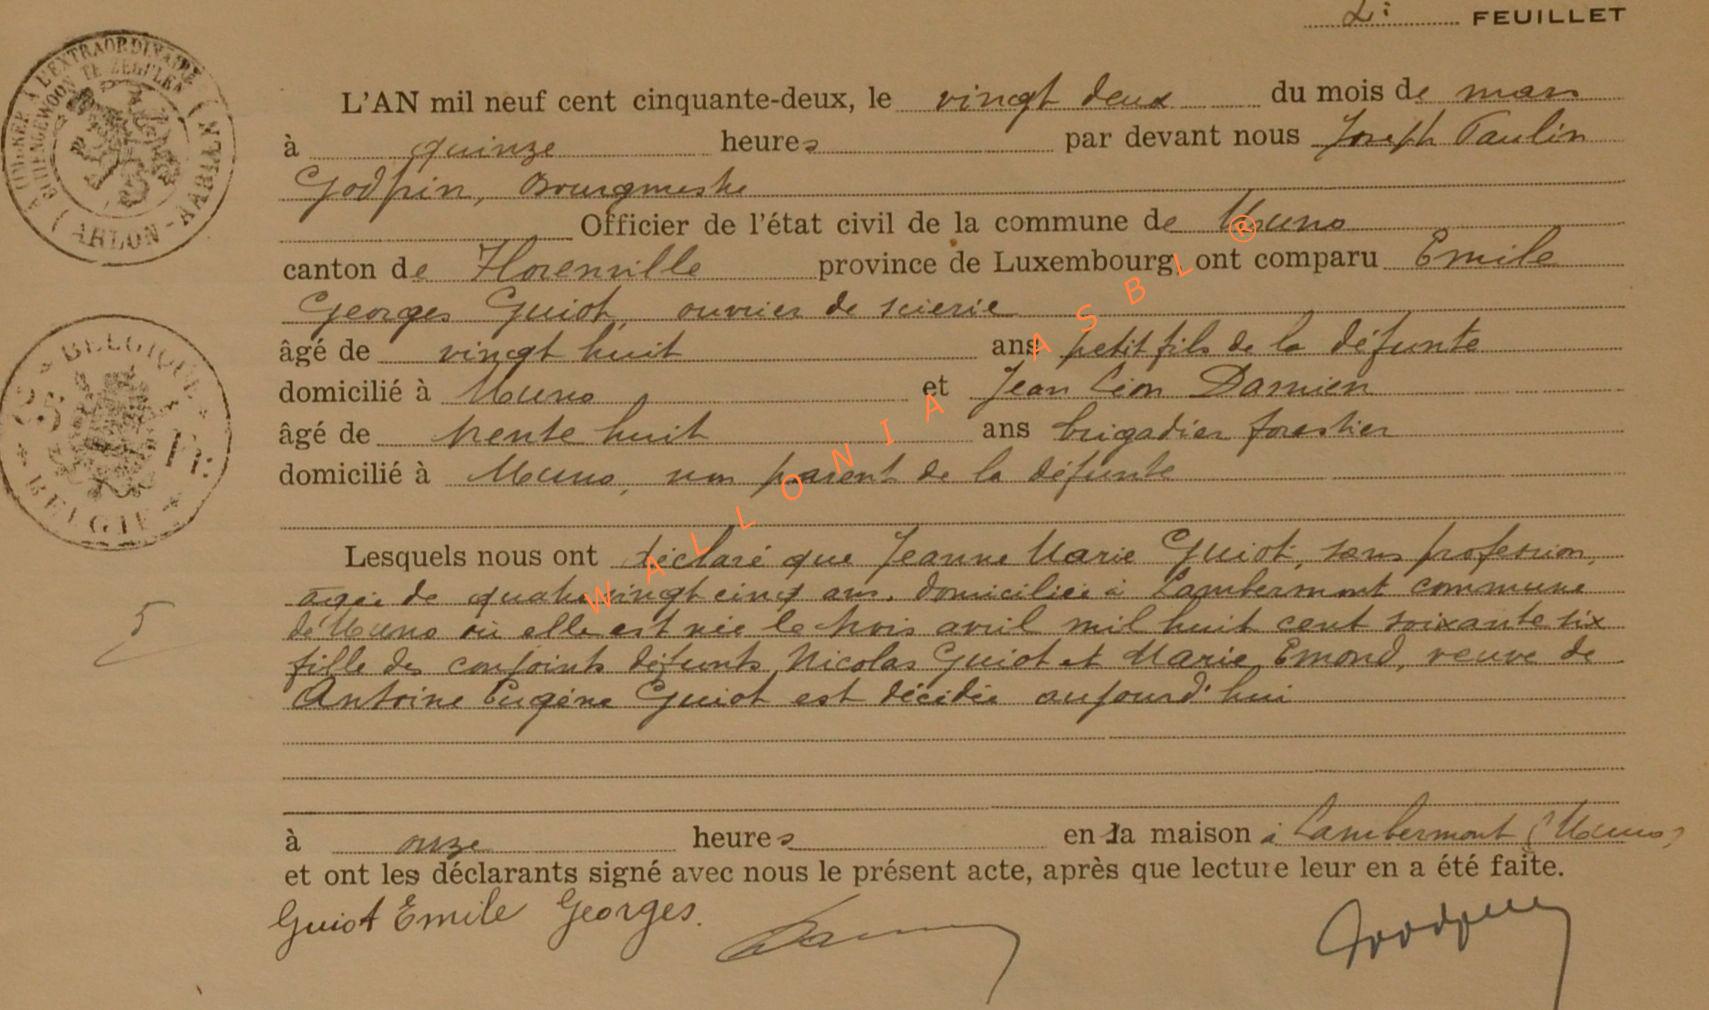 2e FEUILLET
L'AN mil neuf cent cinquante-deux, le vingt deux du mois de mars
à quinze heures par devant nous Joseph Paulin
Godfrin, Bourgmestre
Officier de l'état civil de la commune de Muno
canton de Florenville province de Luxembourg, ont comparu Emile
Georges Guiot, ouvrier de scierie
âgé de vingt huit ans petit fils de la défunte
domicilié à Muno et Jean Léon Damien
âgé de trente huit ans brigadier forestier
domicilié à Muno, non parent de la défunte
Lesquels nous ont déclaré que Jeanne Marie Guiot, sans profession,
agée de quatre vingt cinq ans, domiciliée à Lambermont commune
de Muno où elle est née le trois avril mil huit cent soixante six
fille des conjoints défunts Nicolas Guiot et Marie Emond, veuve de
Antoine Eugène Guiot est décédée aujourd'hui
à onze heures en la maison à Lambermont (Muno)
et ont les déclarants signé avec nous le présent acte, après que lecture leur en a été faite.
Guiot Emile Georges.
Godfrin
5
ARLON - AARLEN
BELGIQUE
5 Fr
BELGIE
WALLONIA ASBL ®